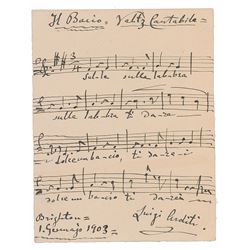 Il Bacio = Valtz Cantabile =
3/4
sulle sulle labbra
sulle labbra ti darei
dolce un bacio, ti darei
dolce un bacio ti darei
Brighton =
1. Gennajo 1903 =
Luigi Arditi.